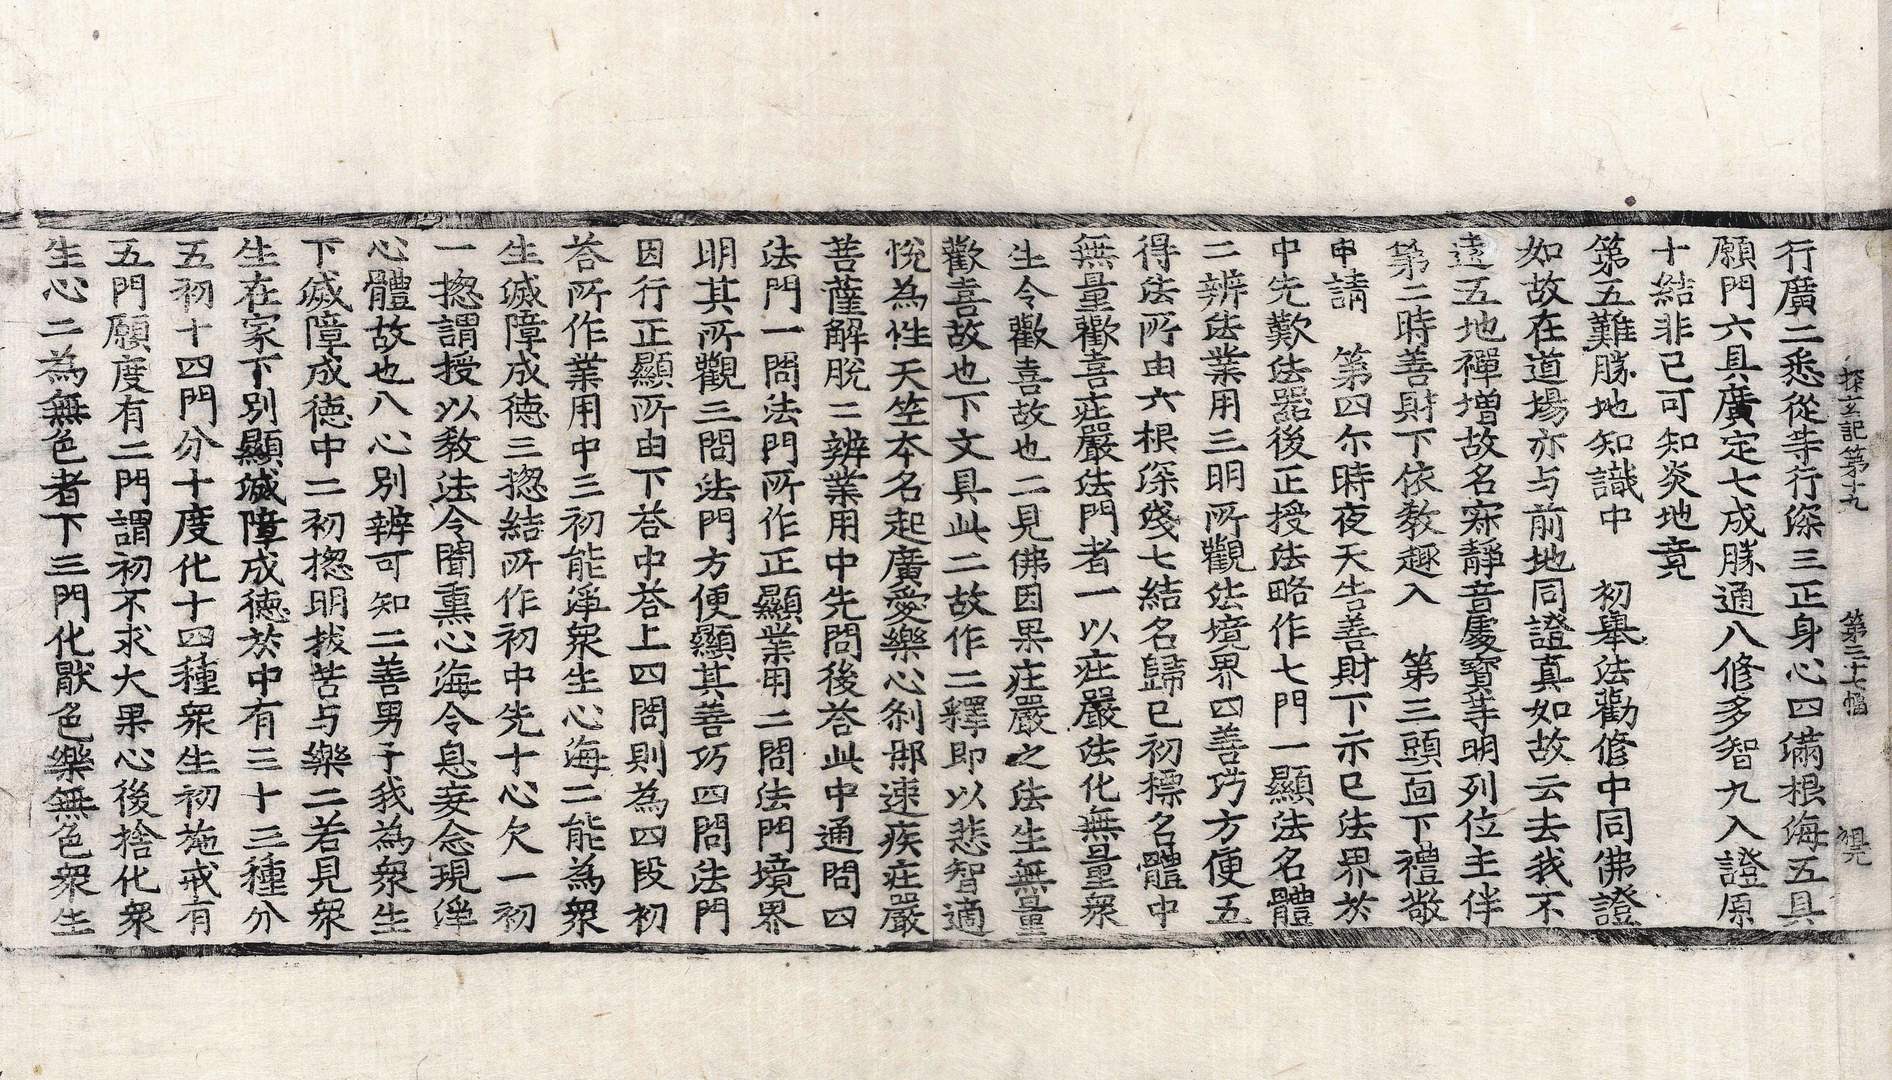 探玄記第十九　第三十七幅
行廣二悉從等行深三正身心四滿根海五具
願門六具廣定七成勝通八修多智九入證原
十結非己可知炎地竟
第五難勝地知識中　初舉法勸修中同佛證
如故在道場亦与前地同證真如故云去我不
遠五地禪增故名寂靜音處寶等明列位主伴
第二時善財下依教趣入　第三頭面下禮敬
申請　第四尓時夜天告善財下示已法界於
中先歎法器後正授法略作七門一顯法名體
二辨法業用三明所觀法境界四善巧方便五
得法所由六根深淺七結名歸已初標名體中
無量歡喜疘嚴法門者一以疘嚴法化無量衆
生令歡喜故也二見佛因果疘嚴之法生無量
歡喜故也下文具此二故作二釋即以悲智適
悅為性天竺夲名起廣愛樂心刹那速疾疘嚴
菩薩解脫二辨業用中先問後荅此中通問四
法門一問法門所作正顯業用二問法門境界
明其所觀三問法門方便顯其善巧四問法門
因行正顯所由下荅中荅上四問則為四段初
荅所作業用中三初能淨衆生心海二能為衆
生滅障成德三揔結所作初中先十心欠一初
一揔謂授以教法令聞熏心海令息妄念現淨
心體故也八心別辨可知二善男子我為衆生
下滅障成德中二初揔明拔苦与樂二若見衆
生在家下別顯滅障成德於中有三十三種分
五初十四門分十度化十四種衆生初施戒有
五門願度有二門謂初不求大果心後捨化衆
生心二為無色者下三門化猒色樂無色衆生